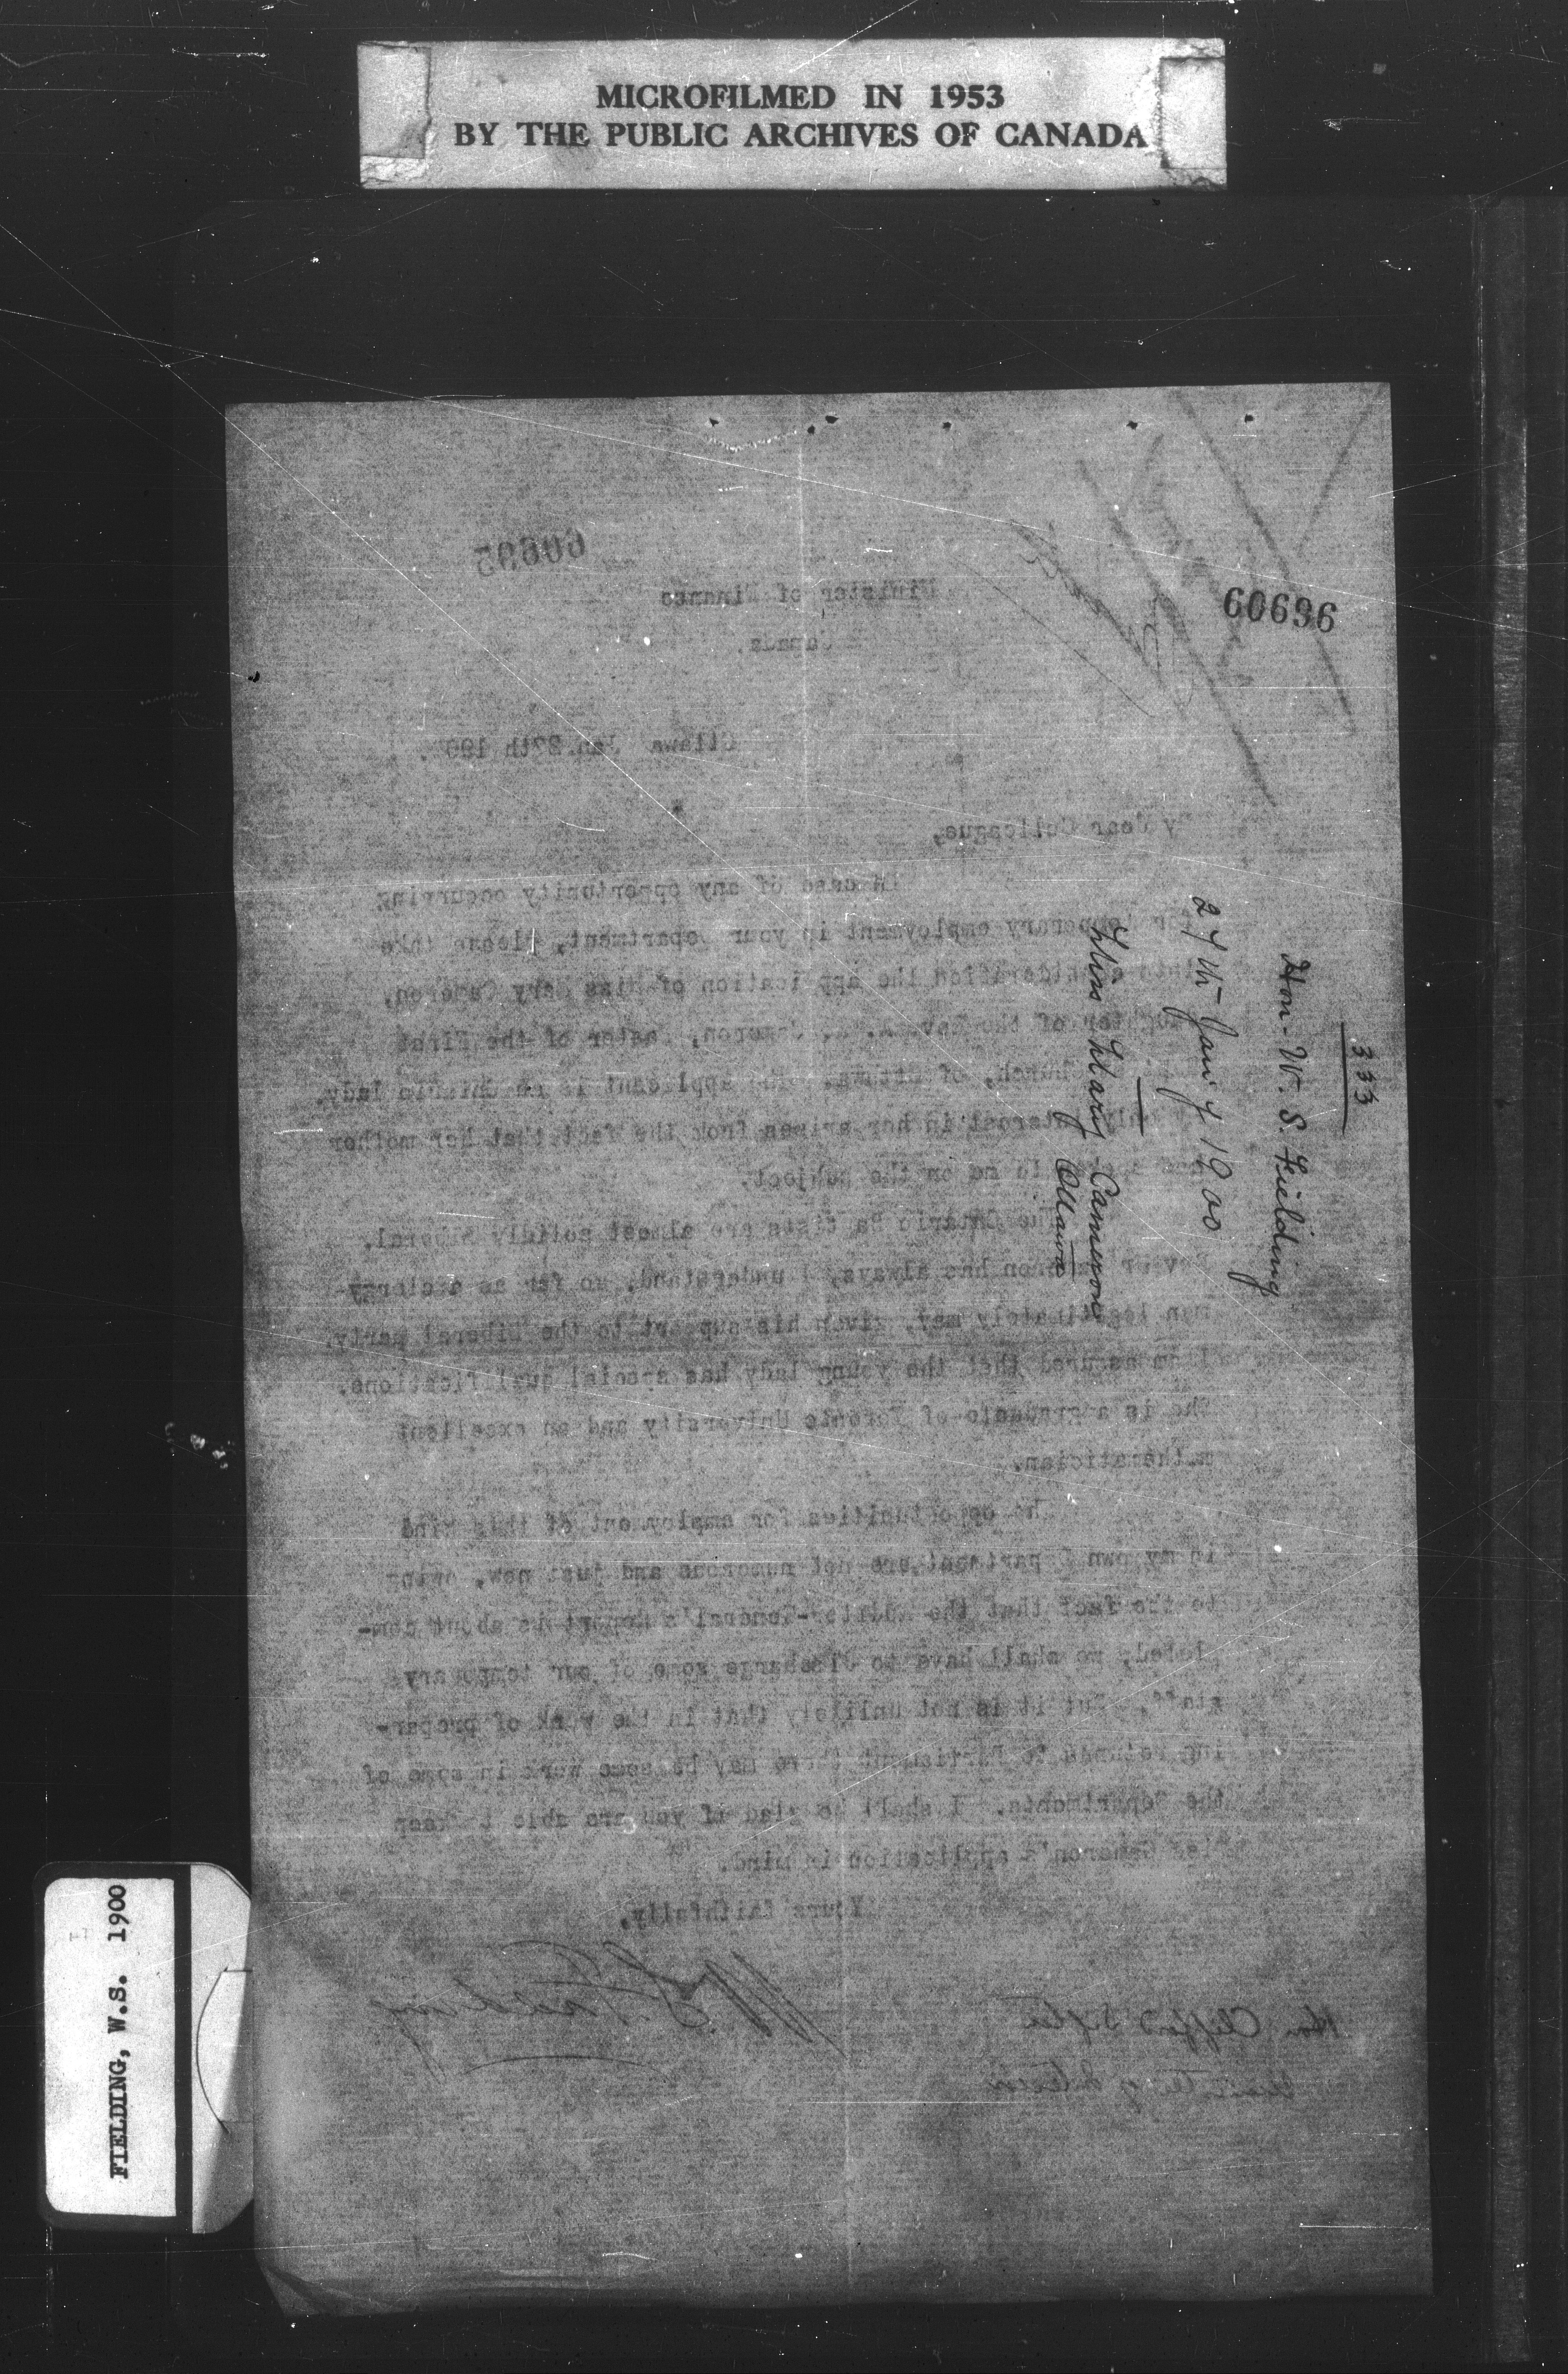 MICROFILMED IN 1953
BY THE PUBLIC ARCHIVES OF CANADA
60695
60696
Minister of Finance
Canada.
Ottawa Jan. 27th 190
My dear Colleague,
In case of any opportunity occurring
for temporary employment in your Department, please take
into consideration the application of Miss Mary Cameron,
daughter of the Rev. Cameron, Pastor of the First
Church, of Ottawa. The applicant is an Ontario lady.
My only interest in her arises from the fact that her mother
has to me on the subject.
The Ontario Baptists are almost solidly Liberal.
Cameron has always, I understand, so far as a clergy-
man legitimately may, given his support to the Liberal party.
I am assured that the young lady has special qualifications.
She is a graduate of Toronto University and an excellent
mathematician.
The opportunities for employment of this kind
in my own Department are not numerous and just now, owing
to the fact that the Auditor-General's Report is about com-
pleted, we shall have to discharge some of our temporary
staff. But it is not unlikely that in the work of prepar-
ing returns to Parliament there may be some work in some of
the Departments. I shall be glad if you are able to keep
Miss Cameron's application in mind.
Yours faithfully,
W. S. Fielding
Hon Clifford Sifton
Minister of Interior
333
Hon. W. S. Fielding
27th Jany 1900
Miss Mary Cameron
Ottawa
FIELDING, W.S. 1900